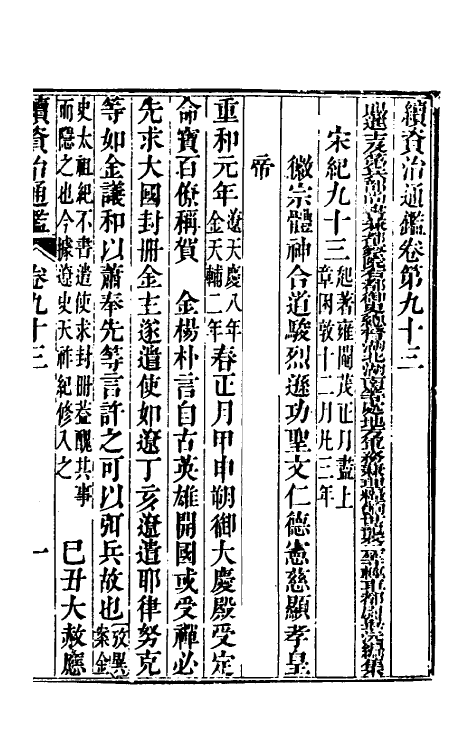 續資治通鑑卷第九十三
宋紀九十三起著雍閹茂正月盡上章困敦十二月凡三年
徽宗體神合道駿烈遜功聖文仁德憲慈顯孝皇
帝
重和元年遼天慶八年金天輔二年春正月甲申朔御大慶殿受定
命寶百僚稱賀　金楊朴言自古英雄開國或受禪必
先求大國封冊金主遂遣使如遼丁亥遼遣耶律努克
等如金議和以蕭奉先等言許之可以弭兵故也攷異案金
史太祖紀不書遣使求封冊葢醜其事而隱之也今據遼史天祚紀修入之　己丑大赦應
續資治通鑑　卷九十三　一